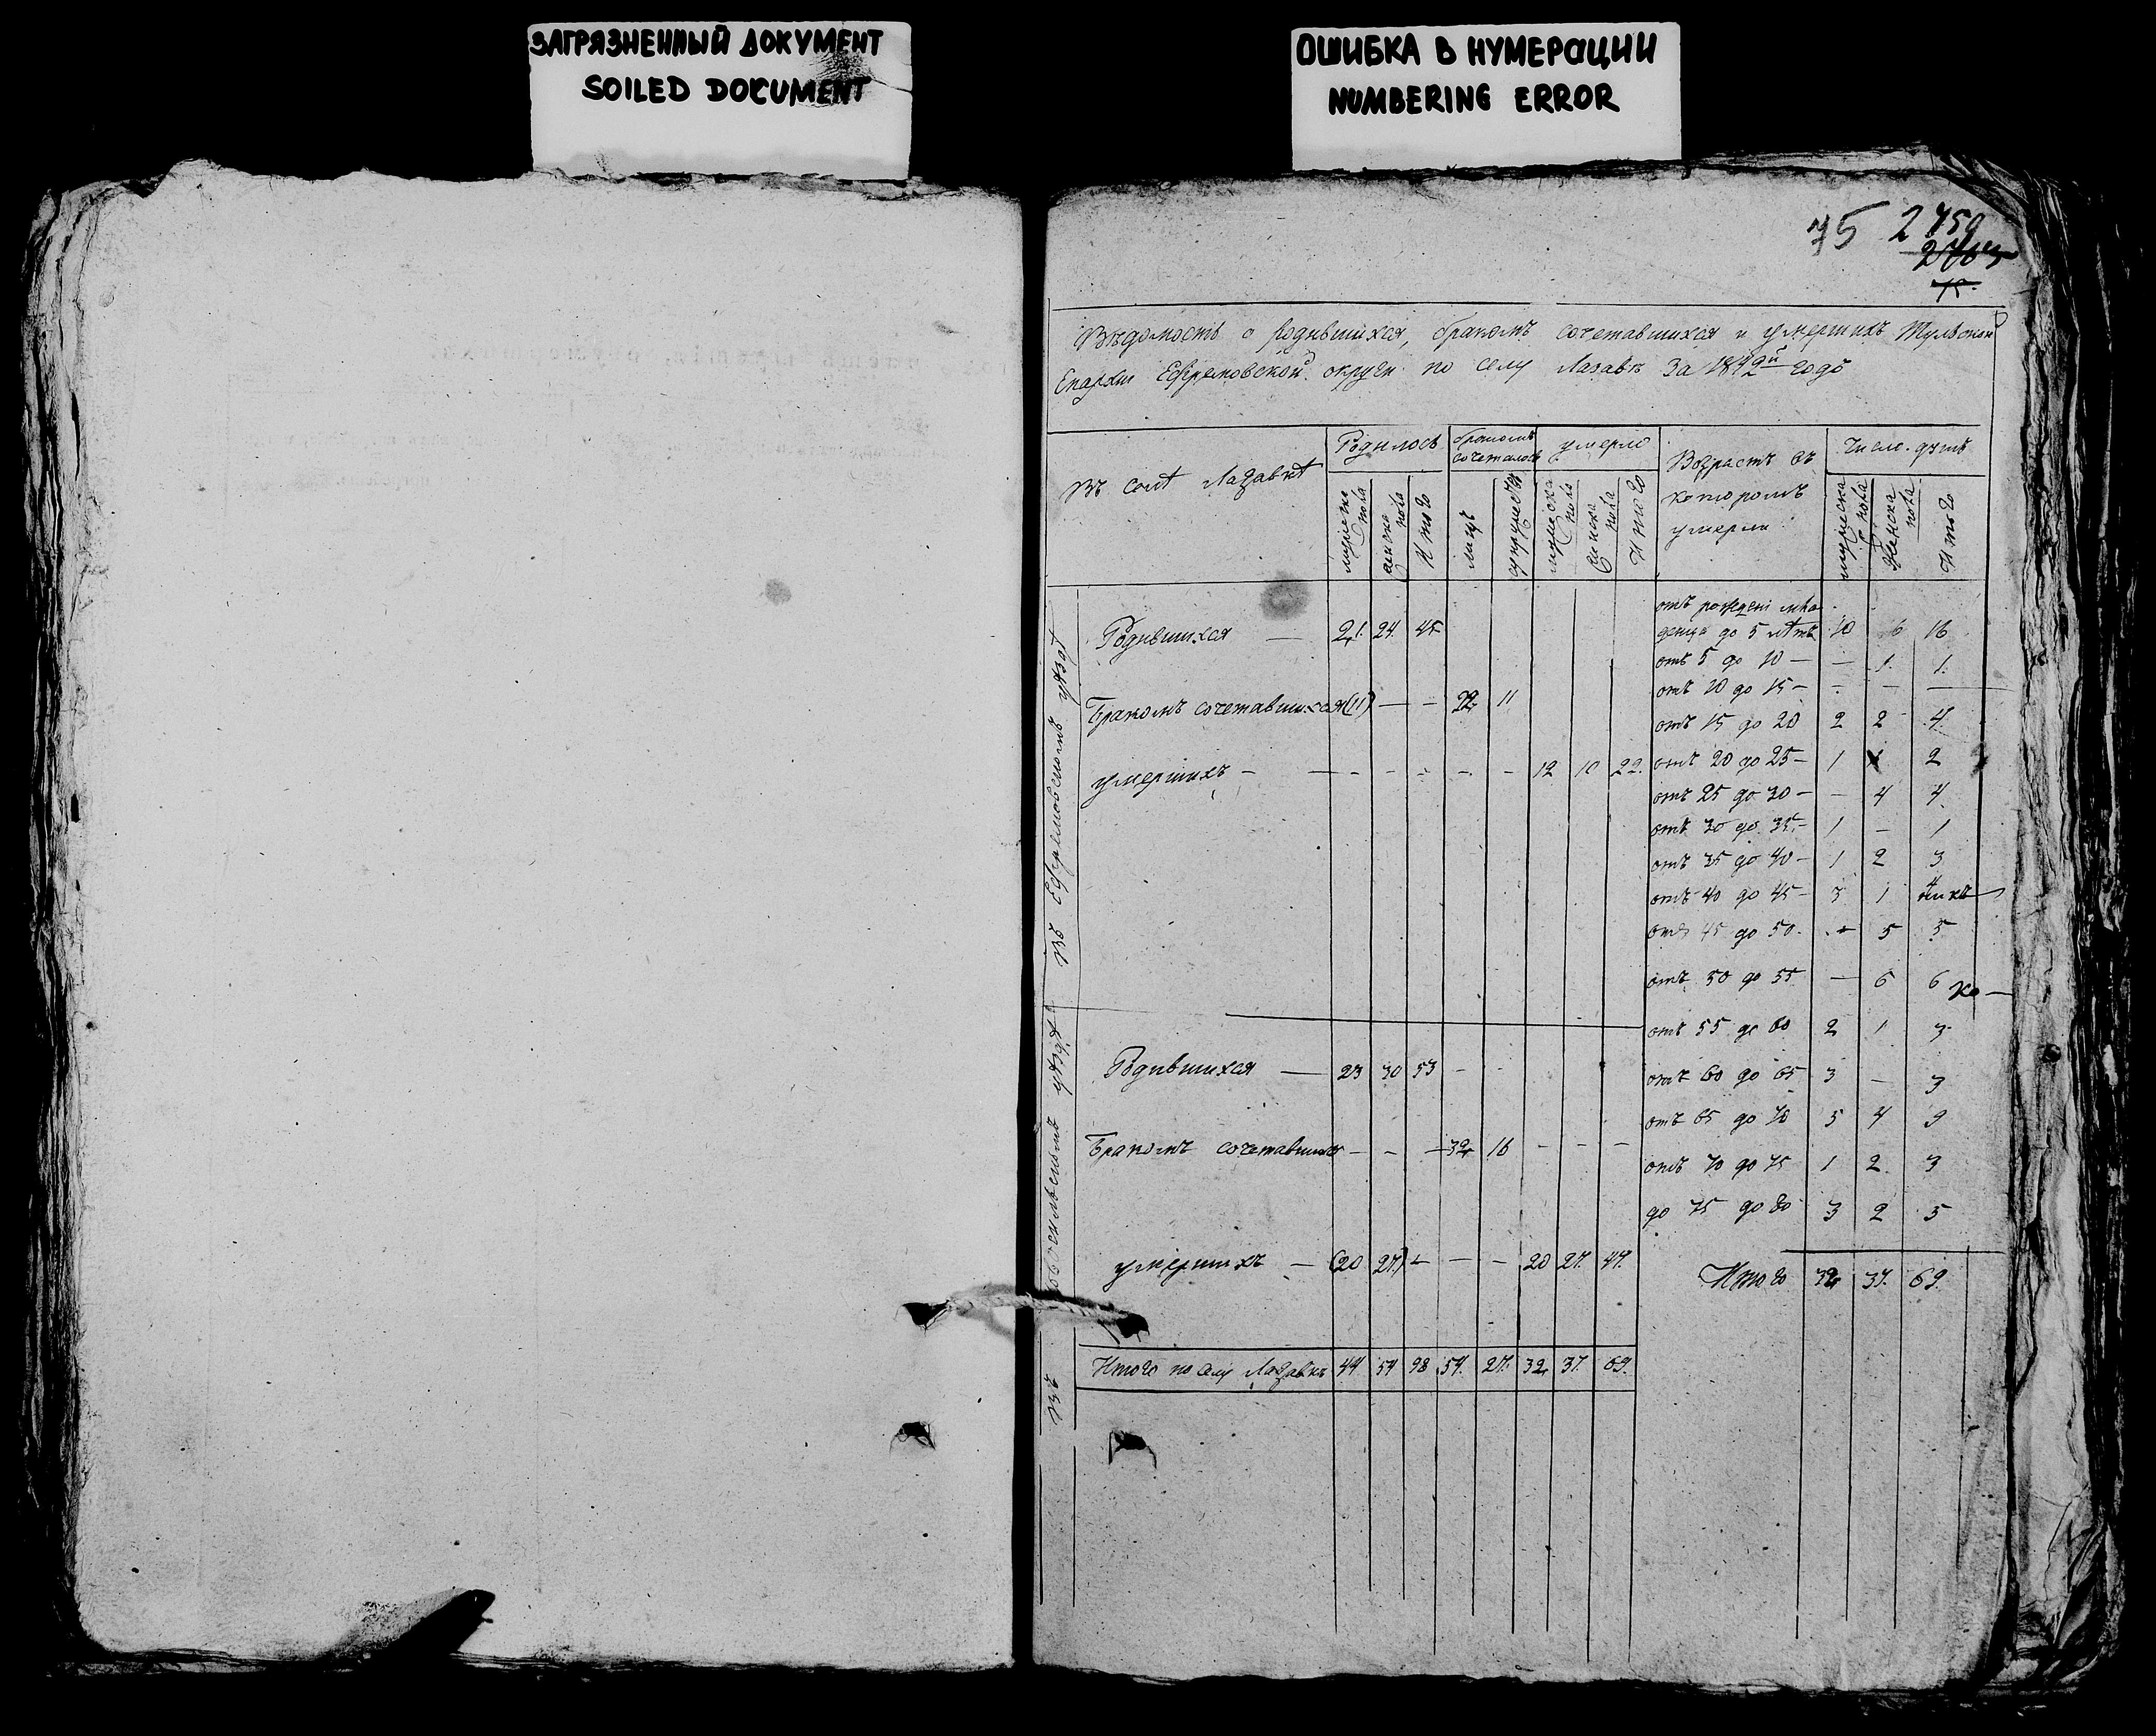 ЗАГРЯЗНЕННЫЙ ДОКУМЕНТ
SOILED DOCUMENT
ОШИБКА В НУМЕРАЦИИ
NUMBERING ERROR
75 2759
Вѣдомость о родившихся, бракомъ сочетавшихся и умершихъ Тульской
Епархіи Ефремовской округи по селу Лазавкѣ За 1842й годъ
Въ селѣ Лазавкѣ
Родилось
бракомъ сочеталось
умерло
Возрастъ въ которомъ умерли
Число душъ
мужеска пола
женска пола
Итого
лицъ
супружествъ
мужеска пола
женска пола
Итого
мужеска пола
женска пола
Итого
Въ Ефремовскомъ уѣздѣ
Родившихся — 21. 24. 45
Бракомъ сочетавшихся (11) — — 22 11
умершихъ — — - - - - - 12 10 22.
Въ уѣздѣ
Родившихся — 23 30 53 - -
Бракомъ сочетавших - - - 32 16 - - -
умершихъ — (20 27.) - - - 20 27. 47.
Итого по селу Лазавкѣ 44 54 98 54. 27. 32 37. 69.
отъ рожденія младенца до 5 лѣтъ 10 6 16
отъ 5 до 10 — — 1. 1.
отъ 10 до 15 — - — —
отъ 15 до 20 2 2 4.
отъ 20 до 25 — 1 1 2
отъ 25 до 30 — — 4 4.
отъ 30 до 35. — 1 — 1
отъ 35 до 40 — 1 2 3
отъ 40 до 45 — 3 1 4
отъ 45 до 50. - 5 5
отъ 50 до 55 — 6 6
отъ 55 до 60 2 1 3
отъ 60 до 65 3 — 3
отъ 65 до 70 5 4 9
отъ 70 до 75 1 2. 3
до 75 до 80 3 2 5
Итого 32 37. 69.